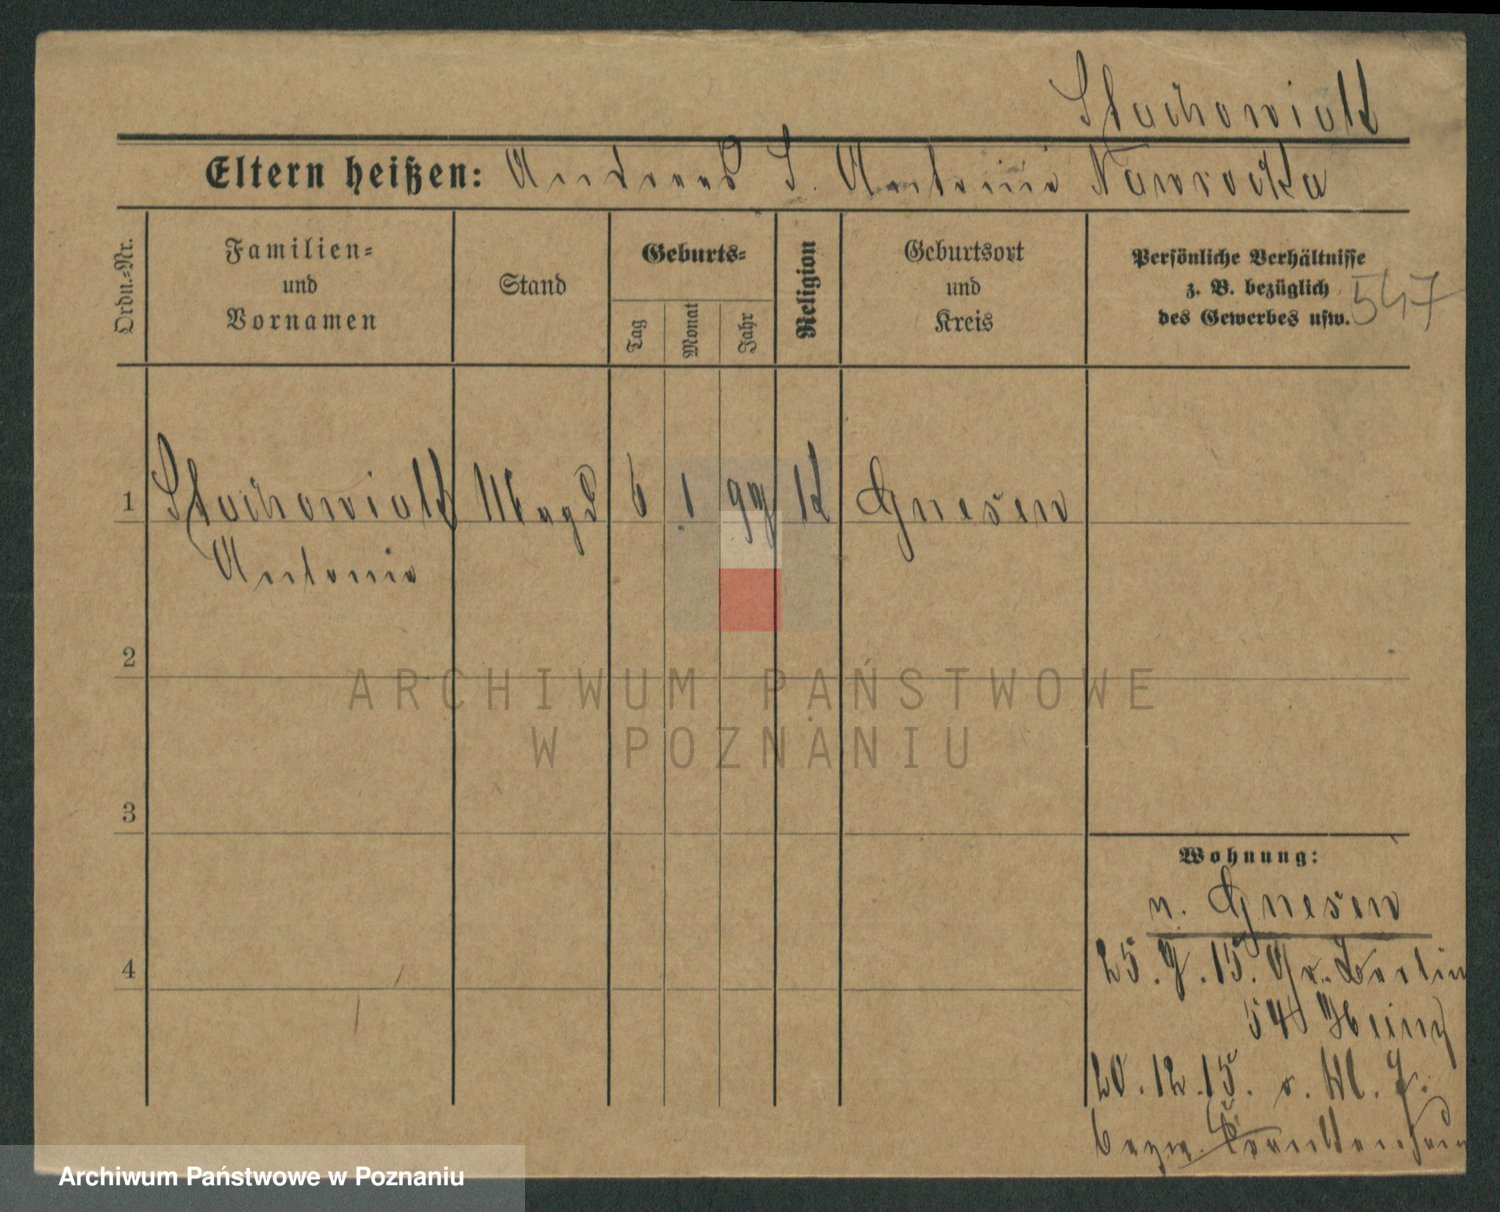 Stachowiak
Eltern heißen: Andreas S. Antonie Nawrocka
Ordn.-Nr.
Familien-
und
Vornamen
Stand
Geburts-
Tag
Monat
Jahr
Religion
Geburtsort
und
Kreis
Persönliche Verhältnisse
z. B. bezüglich
des Gewerbes usw.
547
1 Stachowiak Magd 6 1 99 K Gnesen
Antonie
2
3
4
Wohnung:
v. Gnesen
25. 9. 15. Gr. Berlin
54 Heinz
20.12.15. v. Kl. J.
bezw. Krankenhaus
ARCHIWUM PAŃSTWOWE
W POZNANIU
Archiwum Państwowe w Poznaniu